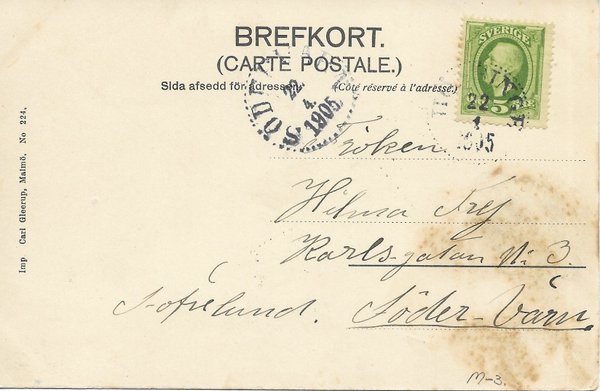 BREFKORT.
(CARTE POSTALE.)
Sida afsedd för adressen.
(Côté réservé à l'adresse.)
SVERIGE
5
22
4
1905
22
4.
1905
Fröken
Hilma Frej
Karlsgatan No 3.
Sofielund. Söder-Värn.
Imp Carl Gleerup, Malmö. No 224.
M-3.